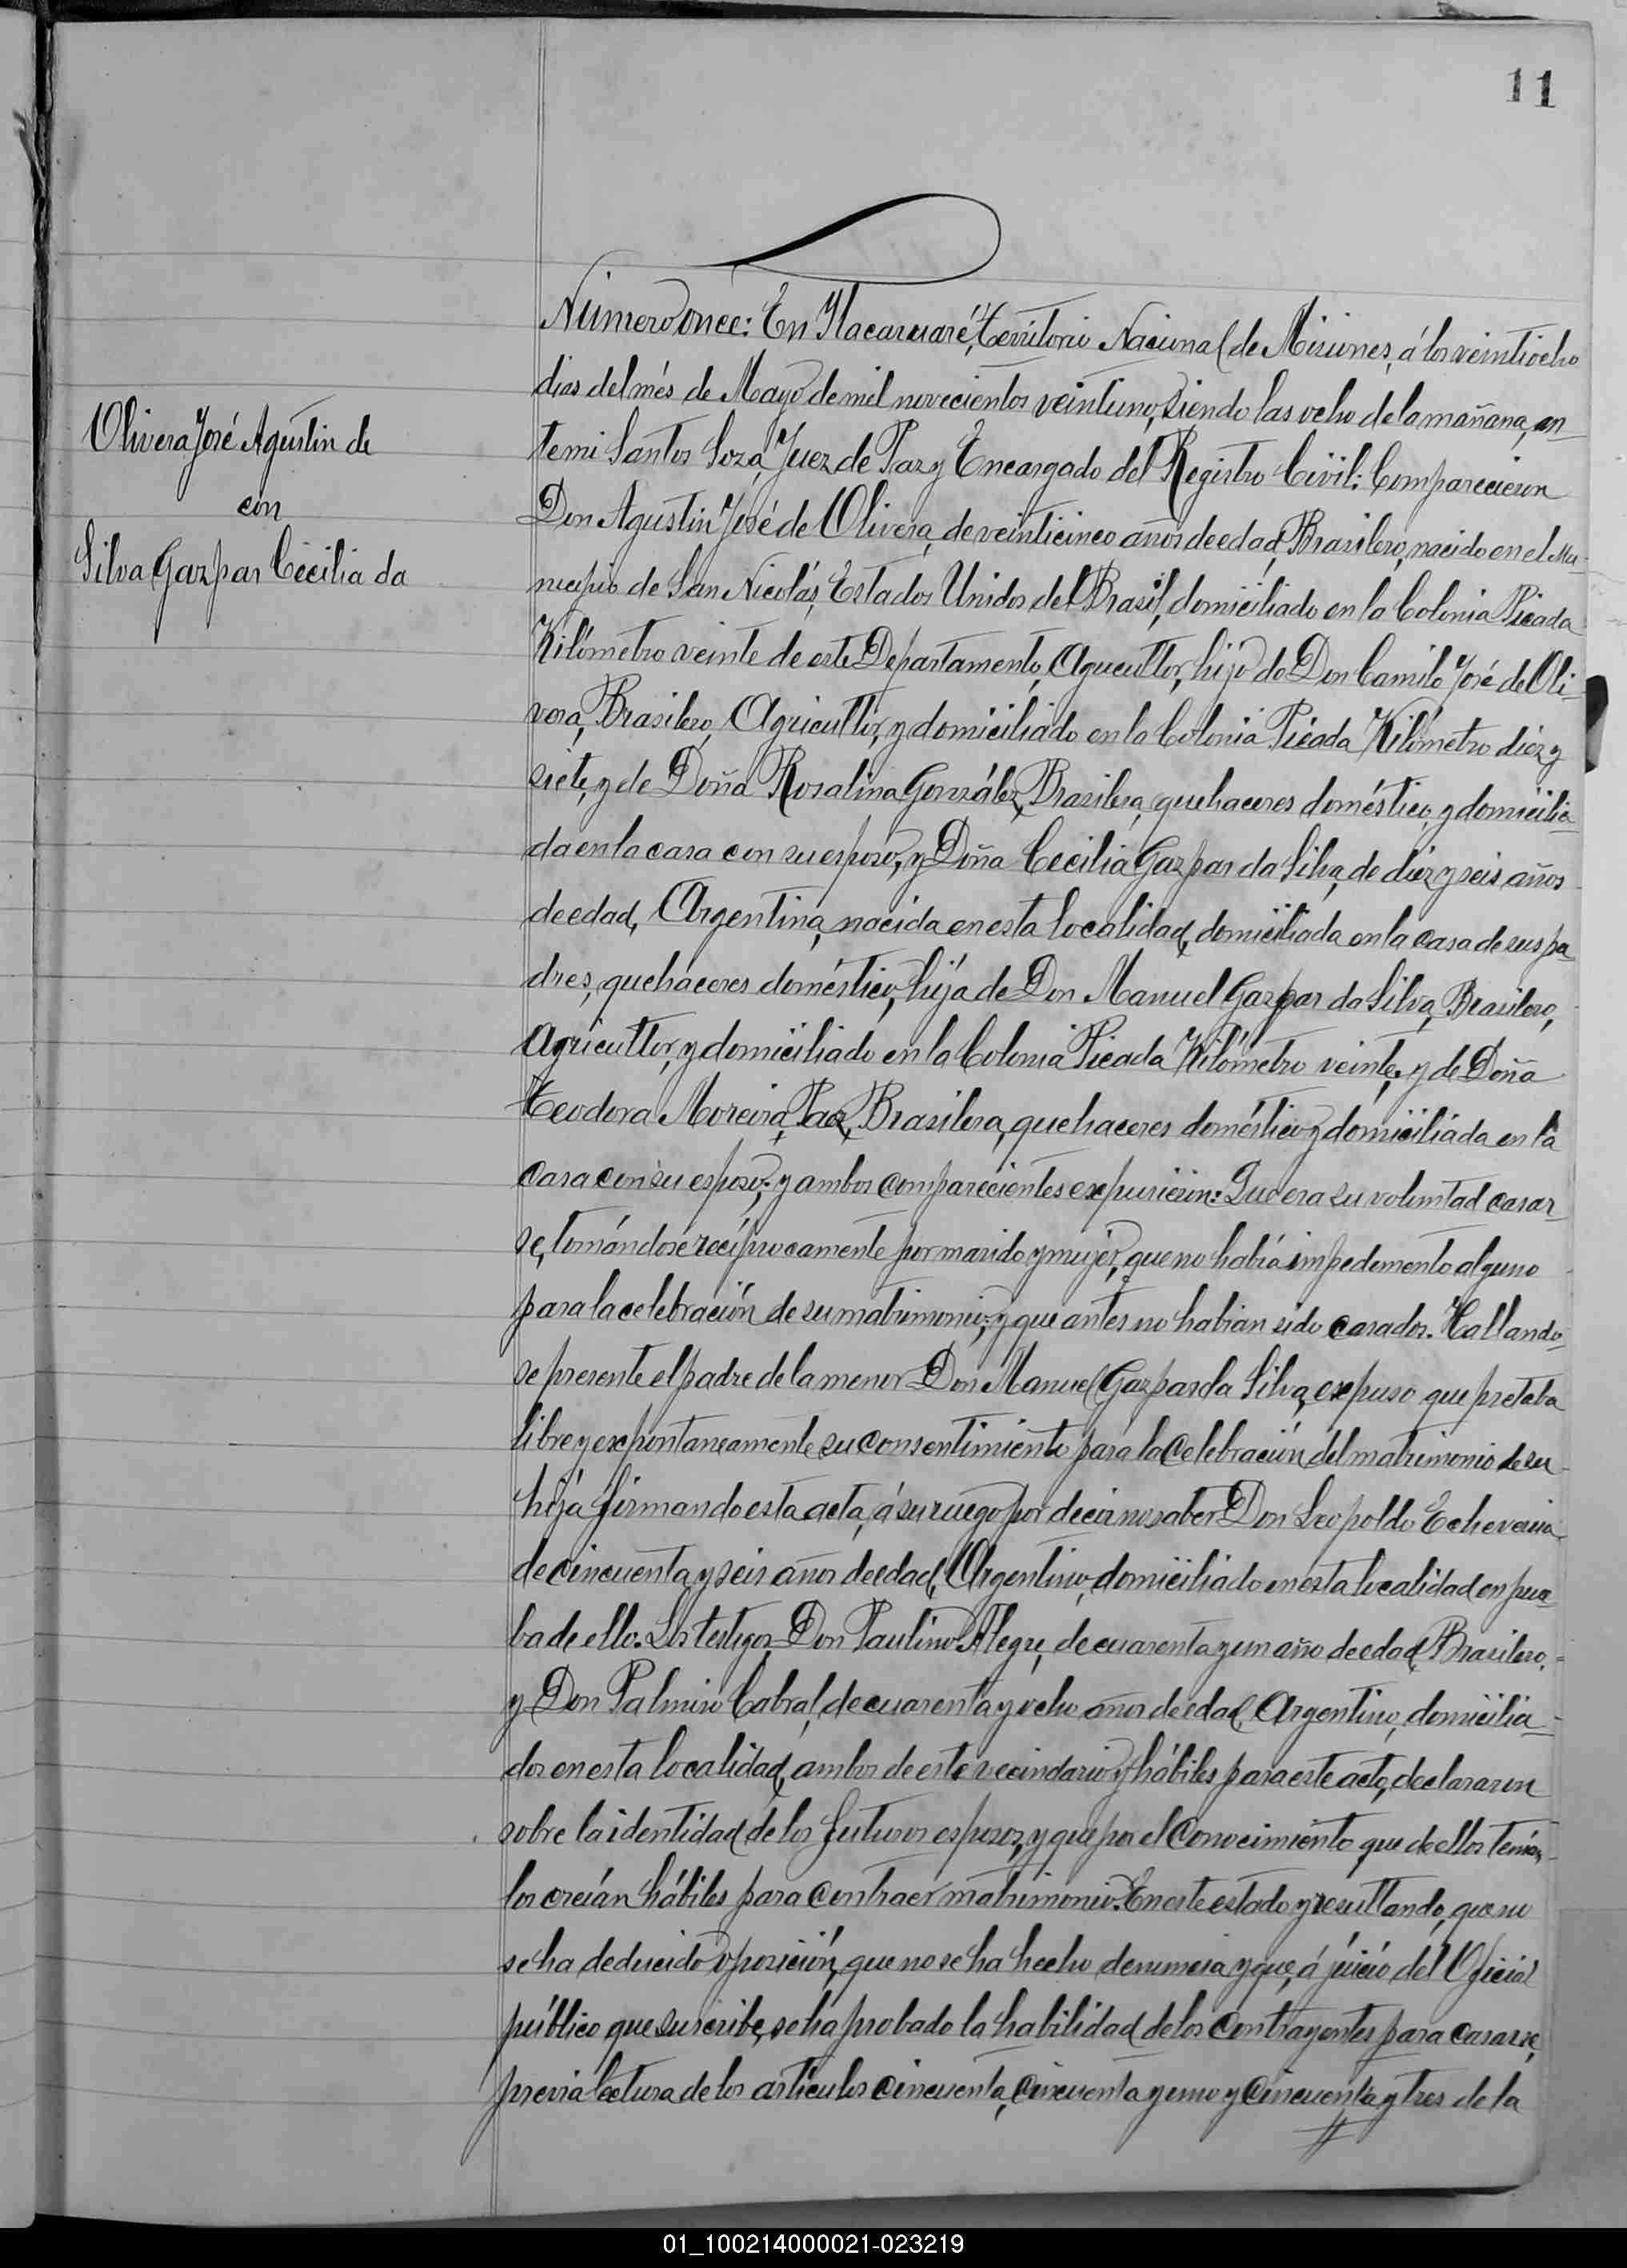 11
Olivera José Agustin de
con
Silva Gazpar Cecilia da
Número once: En Itacaruaré, Territorio Nacional de Misiones, á los veintiocho
dias del més de Mayo de mil novecientos veintiuno, siendo las ocho de la mañana, an-
te mi Santos Soza, Juez de Paz y Encargado del Registro Civil: Comparecieron
Don Agustin José de Olivera, de veinticinco años de edad, Brasilero, nacido en el Mu-
nicipio de San Nicolás, Estados Unidos del Brasil, domiciliado en la Colonia Picada
Kilómetro veinte de este Departamento, Agricultor, hijo de Don Camilo José de Oli-
vera, Brasilero, Agricultor, y domiciliado en la Colonia Picada Kilómetro diez y
siete, y de Doña Rosalina González, Brasilera, quehaceres doméstico, y domicilia-
da en la casa con su esposo, y Doña Cecilia Gazpar da Silva, de diez y seis años
de edad, Argentina, nacida en esta localidad, domiciliada en la casa de sus pa-
dres, quehaceres doméstico, hija de Don Manuel Gazpar da Silva, Brasilero,
Agricultor, y domiciliado en la Colonia Picada Kilómetro veinte, y de Doña
Teodora Moreira Paz, Brasilera, quehaceres doméstico y domiciliada en la
casa con su esposo; y ambos comparecientes expusieron: Que era su voluntad casar-
se, tomándose recíprocamente por marido y mujer, que no había impedemento alguno
para la celebración de su matrimonio; y que antes no habian sido casados. Hallando-
se presente el padre de la menor Don Manuel Gazpar da Silva, expuso que pretaba
libre y expontaneamente su consentimiento para la celebración del matrimonio de su
hija firmando esta acta, á su ruego por decir no saber Don Leopoldo Echeverria
de cincuenta y seis años de edad, Argentino, domiciliado en esta localidad en prue-
ba de ello. Los testigos, Don Paulino Alegre, de cuarenta y un año de edad, Brasilero,
y Don Palmiro Cabral, de cuarenta y ocho años de edad, Argentino, domicilia-
dos en esta localidad, ambos de este vecindario y hábiles para este acto, declararon
sobre la identidad de los futuros esposos, y que por el conocimiento que de ellos tenían,
los creían hábiles para contraer matrimonio. En este estado y resultando, que no
se ha deducido oposición, que no se ha hecho denuncia y que, á juicio del Oficial
público que suscribe, se ha probado la habilidad de los contrayentes para casarse,
previa lectura de los artículos cincuenta, cincuenta y uno y cincuenta y tres de la
01_100214000021-023219